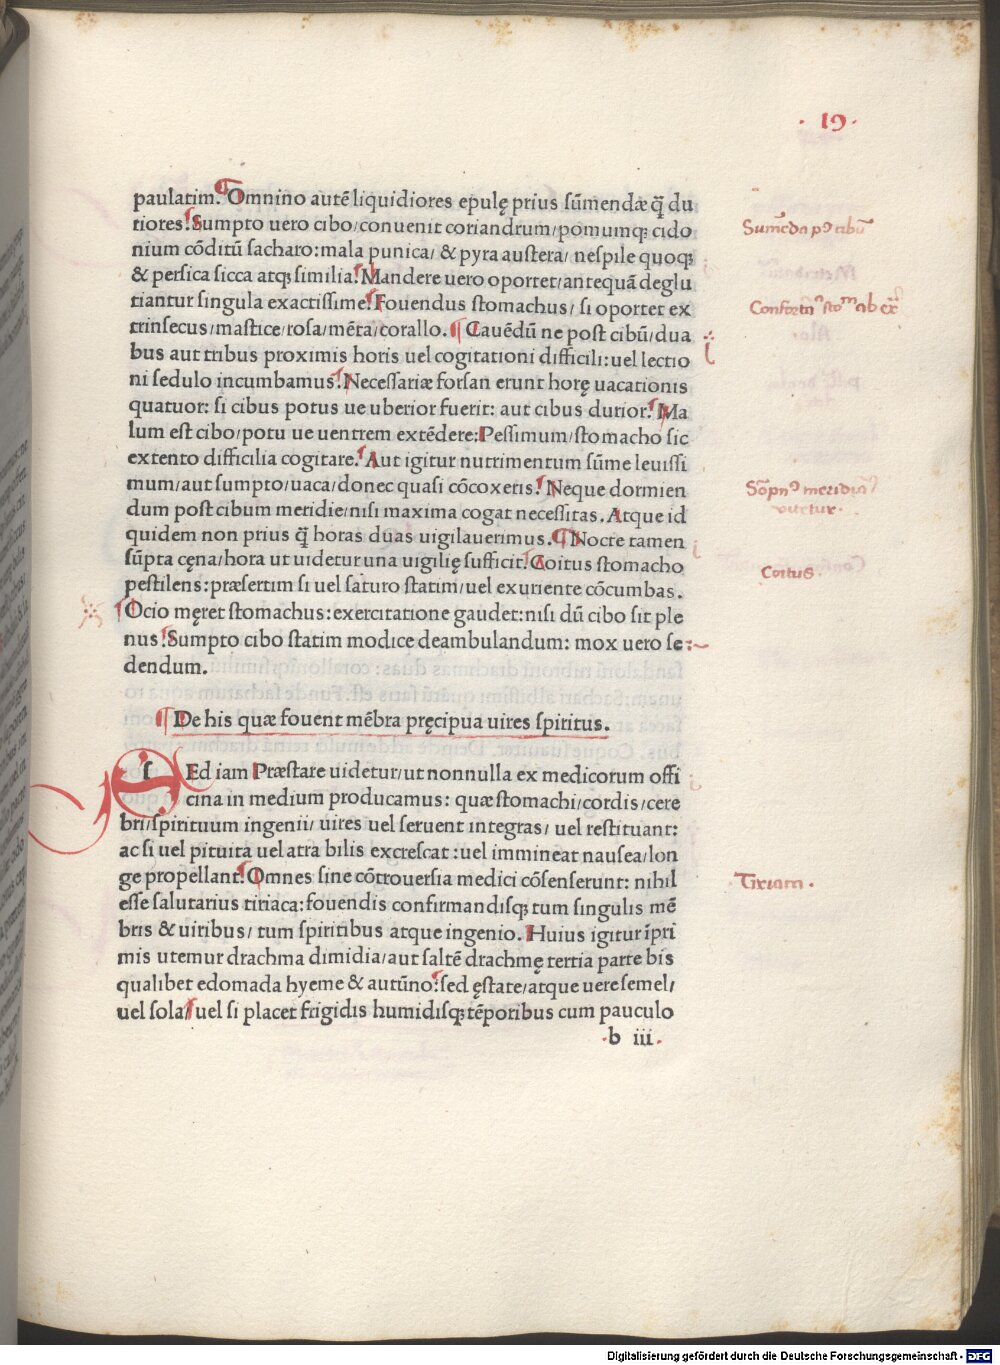 · 19 ·
paulatim. Omnino autē liquidiores epulę prius sūmendæ q̄ du
riores. Sumpto uero cibo/conuenit coriandrum/pomumqꝫ cido
nium cōditū sacharo: mala punica/ & pyra austera/ nespile quoqꝫ
& persica sicca atqꝫ similia. Mandere uero oportet/antequā deglu
tiantur singula exactissime. Fouendus stomachus/ si oportet ex
trinsecus/mastice/rosa/mēta/corallo. Cauēdū ne post cibū/dua
bus aut tribus proximis horis uel cogitationi difficili: uel lectio
ni sedulo incumbamus. Necessariæ forsan erunt horę uacationis
quatuor: si cibus potus ue uberior fuerit: aut cibus durior. Ma
lum est cibo/potu ue uentrem extēdere: Pessimum/stomacho sic
extento difficilia cogitare. Aut igitur nutrimentum sūme leuissi
mum/aut sumpto/uaca/donec quasi cōcoxeris. Neque dormien
dum post cibum meridie/nisi maxima cogat necessitas. Atque id
quidem non prius q̄ horas duas uigilauerimus. Nocte tamen
sūpta cęna/hora ut uidetur una uigilię sufficit. Coitus stomacho
pestilens: præsertim si uel saturo statim/uel exuriente cōcumbas.
Ocio męret stomachus: exercitatione gaudet: nisi dū cibo sit ple
nus. Sumpto cibo statim modice deambulandum: mox uero se
dendum.
De his quæ fouent mēbra pręcipua uires spiritus.
s Ed iam Præstare uidetur/ut nonnulla ex medicorum offi
cina in medium producamus: quæ stomachi/cordis/cere
bri/spirituum ingenii/ uires uel seruent integras/ uel restituant:
ac si uel pituita uel atra bilis excrescat: uel immineat nausea/lon
ge propellant. Omnes sine cōtrouersia medici cōsenserunt: nihil
esse salutarius tiriaca: fouendis confirmandisqꝫ tum singulis mē
bris & uiribus/ tum spiritibus atque ingenio. Huius igitur īpri
mis utemur drachma dimidia/aut saltē drachmę tertia parte bis
qualibet edomada hyeme & autūno: sed ęstate/atque uere semel/
uel sola/ uel si placet frigidis humidisqꝫ tēporibus cum pauculo
b iii
Coitus.
Tiriam.
Digitalisierung gefördert durch die Deutsche Forschungsgemeinschaft - DFG